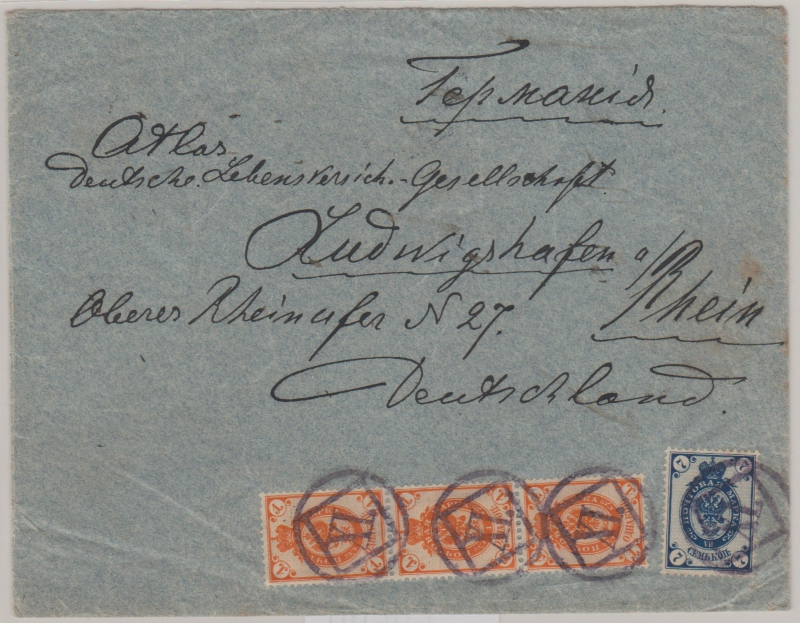 Германія.
Atlas
Deutsche. Lebensversich.-Gesellschaft.
Ludwigshafen a/Rhein
Oberes Rheinufer N 27.
Deutschland.
1 1
1 1
1 1
7 7
ПОЧТОВАЯ МАРКА
СЕМЬ КОП.
7 7